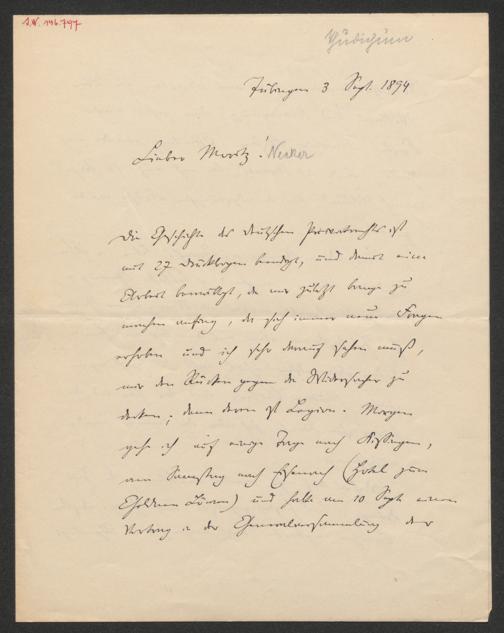 I.N. 146.797
Thudichum
Tübingen 3 Sept. 1894
Lieber Moritz! Necker
Die Geschichte des deutschen Privatrechts ist
mit 27 Druckbogen beendigt, und damit eine
Arbeit bewältigt, die mir zuletzt bange zu
machen anfing, da sich immer neue Fragen
erhoben und ich sehr darauf sehen muß,
mir den Rücken gegen die Widersacher zu
decken; denn deren ist Legion. Morgen
gehe ich auf einige Tage nach Kissingen,
am Samstag nach Eisenach (Hotel zum
Goldenen Löwen) und halte am 10 Sept. einen
Vortrag in der Generalversammlung der